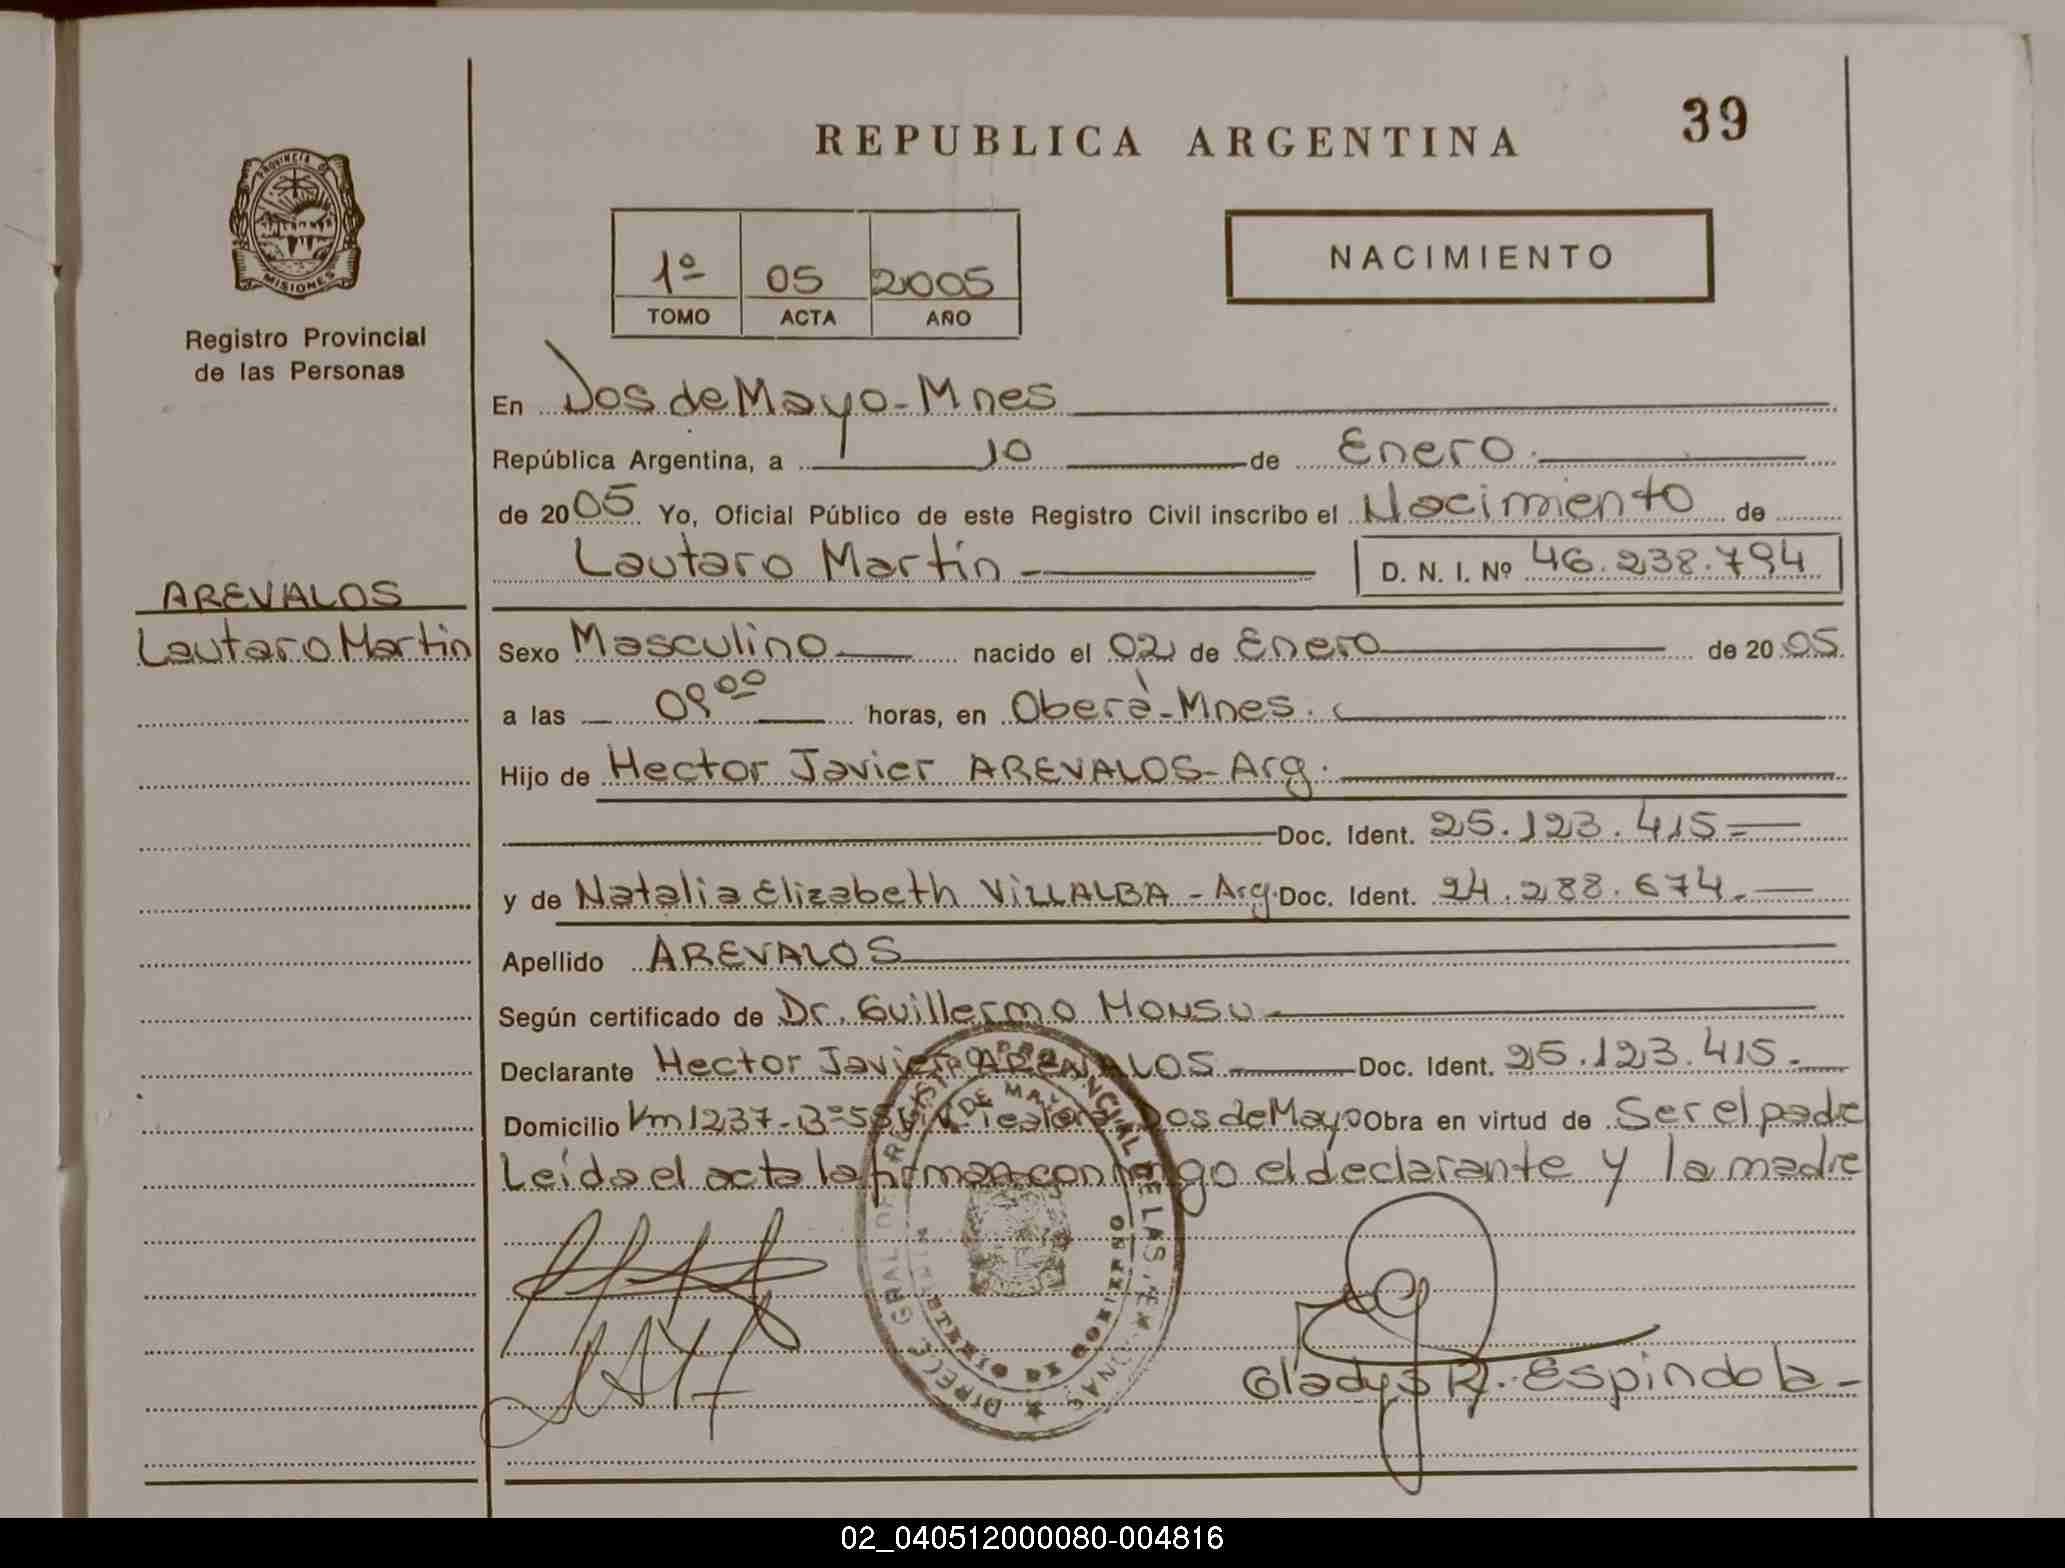 REPUBLICA ARGENTINA
39
PROVINCIA DE
MISIONES
Registro Provincial
de las Personas
1º 05 2005
TOMO ACTA AÑO
NACIMIENTO
En Dos de Mayo - Mnes
República Argentina, a 10 de Enero
de 2005 Yo, Oficial Público de este Registro Civil inscribo el Nacimiento de
Lautaro Martin D. N. I. Nº 46.238.794
AREVALOS
Lautaro Martin
Sexo Masculino nacido el 02 de Enero de 2005
a las 09⁰⁰ horas, en Oberá - Mnes.
Hijo de Hector Javier AREVALOS - Arg.
Doc. Ident. 25.123.415
y de Natalia Elizabeth VILLALBA - Arg. Doc. Ident. 24.288.674.
Apellido AREVALOS
Según certificado de Dr. Guillermo MONSU
Declarante Hector Javier AREVALOS Doc. Ident. 25.123.415.
Domicilio Km 1237 - Bº Dos de Mayo Obra en virtud de Ser el padre
Leída el acta la firman conmigo el declarante y la madre
Gladys R. Espindola -
02_040512000080-004816